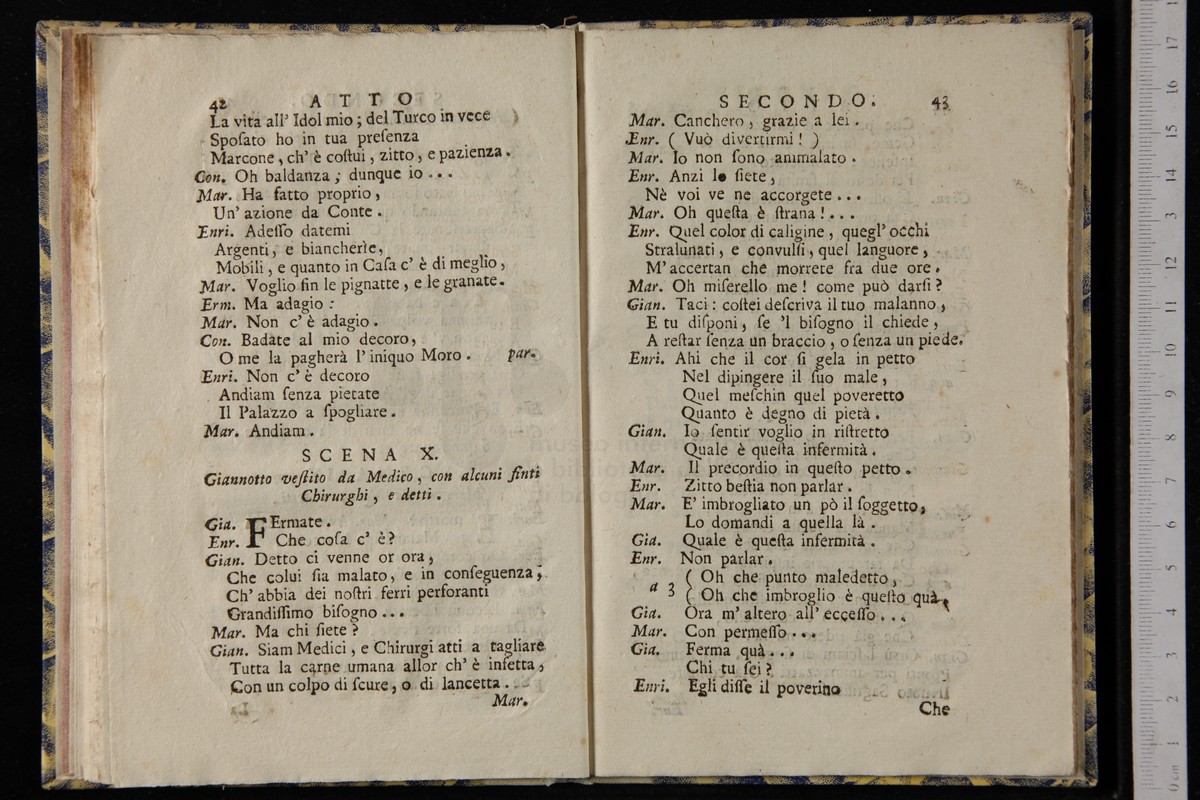 42 ATTO
La vita all' Idol mio; del Turco in vece
Spoſato ho in tua preſenza
Marcone, ch' è coſtui, zitto, e pazienza.
Con. Oh baldanza; dunque io...
Mar. Ha fatto proprio,
Un' azione da Conte.
Enri. Adeſſo datemi
Argenti, e biancherìe,
Mobili, e quanto in Caſa c' è di meglio,
Mar. Voglio fin le pignatte, e le granate.
Erm. Ma adagio:
Mar. Non c' è adagio.
Con. Badate al mio decoro,
O me la pagherà l' iniquo Moro. par.
Enri. Non c' è decoro
Andiam ſenza pietate
Il Palazzo a ſpogliare.
Mar. Andiam.
SCENA X.
Giannotto veſtito da Medico, con alcuni finti
Chirurghi, e detti.
Gia. FErmate.
Enr. Che coſa c' è?
Gian. Detto ci venne or ora,
Che colui ſia malato, e in conſeguenza,
Ch' abbia dei noſtri ferri perforanti
Grandiſſimo biſogno...
Mar. Ma chi ſiete?
Gian. Siam Medici, e Chirurgi atti a tagliare
Tutta la carne umana allor ch' è infetta,
Con un colpo di ſcure, o di lancetta.
Mar.
SECONDO. 43
Mar. Canchero, grazie a lei.
Enr. ( Vuò divertirmi! )
Mar. Io non ſono ammalato.
Enr. Anzi lo ſiete,
Nè voi ve ne accorgete...
Mar. Oh queſta è ſtrana!...
Enr. Quel color di caligine, quegl' occhi
Stralunati, e convulſi, quel languore,
M' accertan che morrete fra due ore.
Mar. Oh miſerello me! come può darſi?
Gian. Taci: coſtei deſcriva il tuo malanno,
E tu diſponi, ſe 'l biſogno il chiede,
A reſtar ſenza un braccio, o ſenza un piede.
Enri. Ahi che il cor ſi gela in petto
Nel dipingere il ſuo male,
Quel meſchin quel poveretto
Quanto è degno di pietà.
Gian. Io ſentir voglio in riſtretto
Quale è queſta infermità.
Mar. Il precordio in queſto petto.
Enr. Zitto beſtia non parlar.
Mar. E' imbrogliato un pò il ſoggetto,
Lo domandi a quella là.
Gia. Quale è queſta infermità.
Enr. Non parlar.
a 3 ( Oh che punto maledetto,
( Oh che imbroglio è queſto quà,
Gia. Ora m' altero all' ecceſſo...
Mar. Con permeſſo...
Gia. Ferma quà...
Chi tu ſei?
Enri. Egli diſſe il poverino
Che